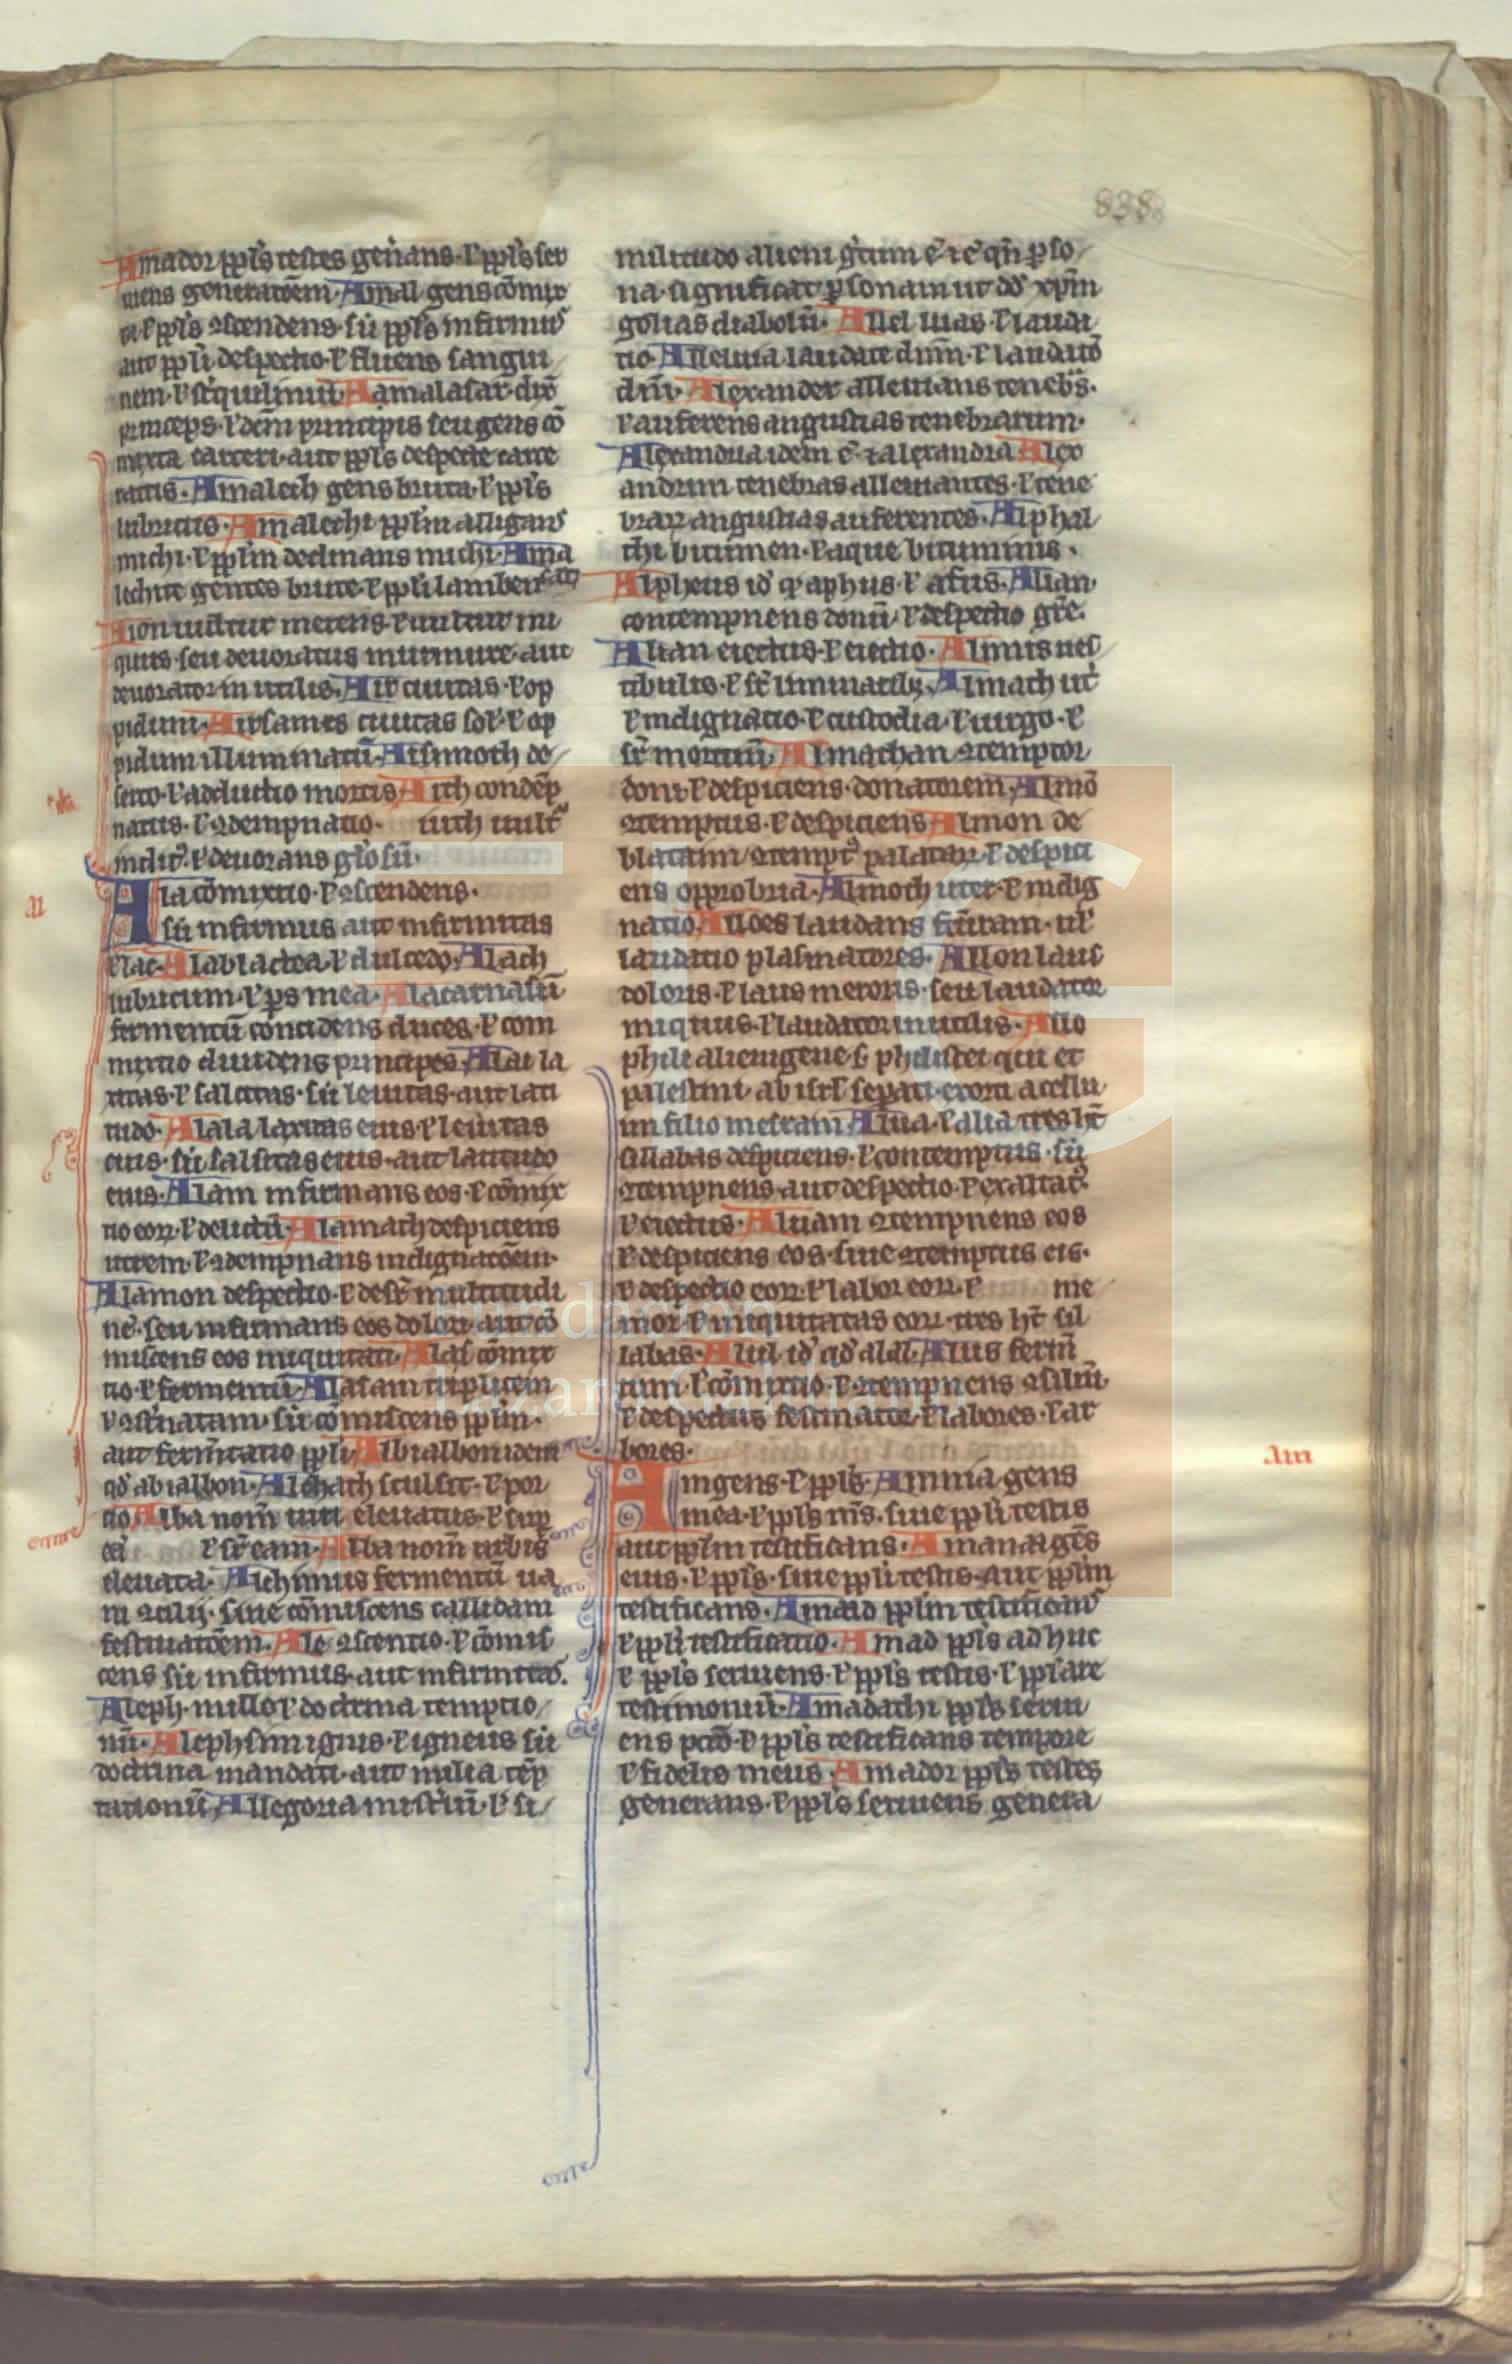 838
Amador ppl's testes gen'ans. l' ppl's ser
uiens generatōem. Amal gens cōmix
ta l' ppl's ɔscendens. siū ppl's infirmus
aut ppl'i despectio. l' fluens sangui
nem. Aamalasar. dix
princeps. l' dēm principis seu gens cō
mixta carceri. aut ppl's despecte carce
ratus. Amalech gens bruta. l' ppl's
lubricus. Amalechi ppl'm alligans
michi. l' ppl'm declinans michi. Ama
lechite gentes brute. l' ppl'i lamben
Aion uultur metens. l' uultur ini
quus. seu deuoratus murmure. aut
deuorator inutilis. Air ciuitas. l' op
pidum. Airsames ciuitas sol'. l' op
pidum illuminatū. Aisimoth de
serto. l' adductio mortis. Aith condēp
natus. l' ɔdempnatio. uith uult
indic'. l' deuorans glosū.
Ala cōmixtio. l' ɔscendens.
siū infirmus aut infirmitas
l' lac. Alab lactea. l' dulcedo. Alach
lubricum. l' ps mea. Alacarnasū
fermentū concidens duces. l' com
mixtio diuidens principes. Alai la
uitus. l' salcitus. siū leuitas. aut lati
tudo. Alala laxitas eius. l' leuitas
eius. siū salsitas eius. aut latitudo
eius. Alam infirmans eos. l' cōmix
tio eoꝝ. l' delictū. Alamach despiciens
utrem. l' ɔdempnans indignatōem.
Alamon despectio. l' desr' multitudi
ne. seu infirmans eos dolori. aut cō
miscens eos iniquitati. Alas cōmix
tio. l' fermentū. Alasam triplicem
l' ɔst'natam. siū cōmiscens ppl'm.
aut ferm̄tatio ppl'i. Albialbon idem
qd' abialbon. Alchach sculsit. l' por
tio. Alba nom̄ uiri eleuatus. l' sup
eā l' sr' eam. Alba nom̄ urbis
eleuata. Alchimus fermentū ua
ni ɔcilij. siue cōmiscens callidam
festinatōem. Ale ɔscentio. l' cōmis
cens siū infirmus. aut infirmitas.
Aleph. mille l' doctrina temptio
nū. Alephsim ignis. l' igneus siū
doctrina mandati. aut milia tēp
tationū. Allegoria mist'iū. l' si
militudo alieni g̃tum ē. i ē qn̄ pso
na significat psonam ut dd' xp̄m
golias diabolū. Allel luas. l' lauda
tio. Alleluia laudate dnm̄. l' laudatō
dn̄i. Alexander alleuians teneb's.
l' auferens angustias tenebrarum.
Alexandria idem ē. ⁊ alexandria Alex
andrini tenebras alleuiantes. l' tene
braꝝ angustias auferentes. Alphal
thi bitumen. l' aque bituminis.
Alpheus id' qr aphus. l' afus. Alian
contempnens donū. l' despectio gr̄e.
Alian eiectus. l' eiectio. Alimus ues
tibulis. l' sr' liminarib;. Almach ut'
l' indignatio. l' custodia. l' uirgo. l'
sr' mortuū. Almachan ɔtemptor
doni. l' despiciens donatorem. Almō
ɔtemptus. l' despiciens Almon de
blataim ɔtempt' palataꝝ. l' despici
ens opprobria. Almoth uter. l' indig
natio. Alloes laudans fact̄uram. ul'
laudatio plasmatores. Allon laus
doloris. l' laus meroris. seu laudator
iniquus. l' laudator inutilis. Allo
phili alienigene. s. philistei qui et
palestini. ab isrl' sepati. exorti a cesslu
im filio mesraim Alua. l' alia tres ht̄
sillabas despiciens. l' contemptus. siū
ɔtempnens. aut despectio. l' exaltat'
l' eiectus. Aluam ɔtempnens eos
l' despiciens eos. siue ɔtemptus eis.
l' despectio eoꝝ. l' labor eoꝝ. l' me
mor. l' iniquitatas eoꝝ. tres ht̄ sil
labas. Alul id' qd' alal. Alus ferm̄
tum. l' cōmixtio. l' ɔtempnens ɔsiliū.
l' despectus festinatio. l' labores. l' ar
bores.
Am gens. l' ppl's. Amma gens
mea. l' ppl's ms̄. siue ppl'i testis
aut ppl'm testificans. Amana gēs
eius. l' ppl's. siue ppl'i testis. aut ppl'm
testificans. Amaad ppl'm testificans
l' ppl'i testificatio. Amad ppl's adhuc
l' ppl's seruiens. l' ppl's testis. l' ppl'are
testimoniū. Amadathi ppl's serui
ens pctō. l' ppl's testificans tempore
l' fidelis meus. Amador ppl's testes
generans. l' ppl's seruiens genera
al
Am